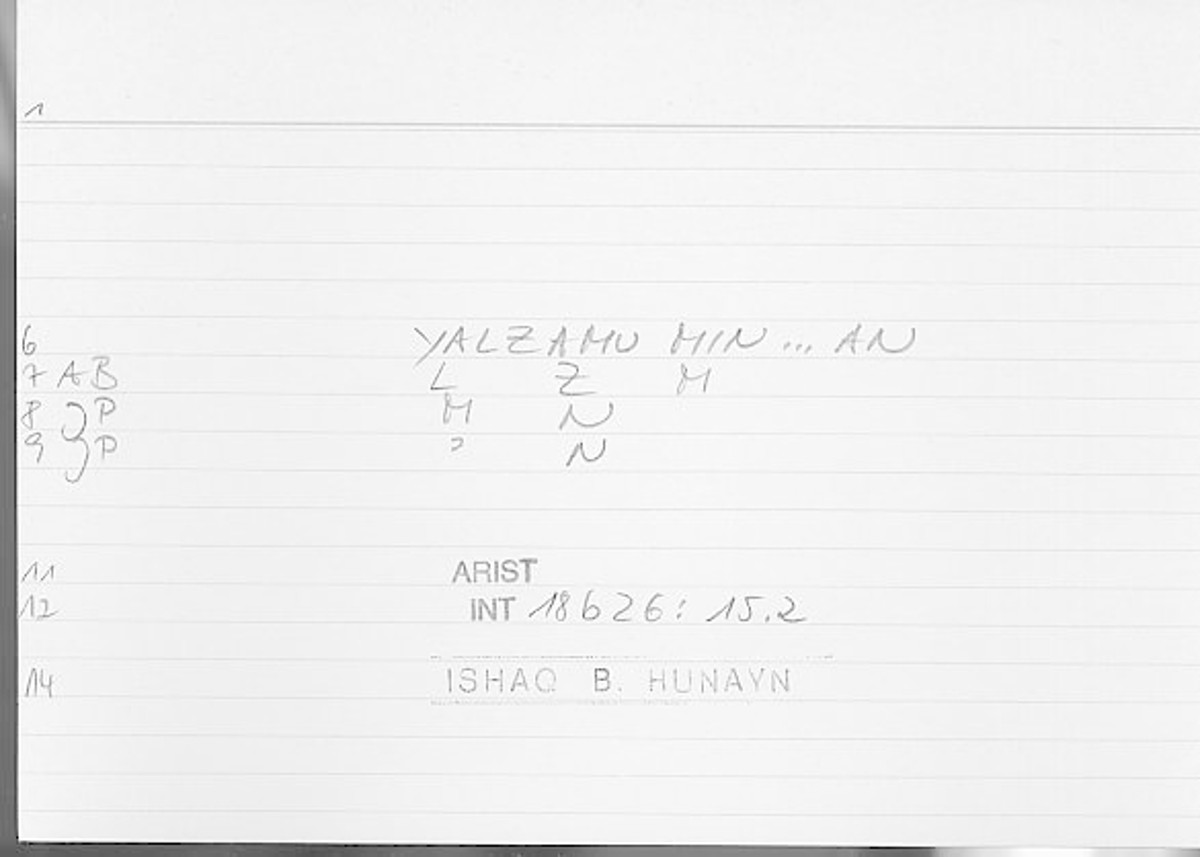 1
6 YALZAMU MIN ... AN
7 AB L Z M
8 JP M N
9 JP ɔ N
11 ARIST
12 INT 18626: 15.2
14 ISHAQ B. HUNAYN